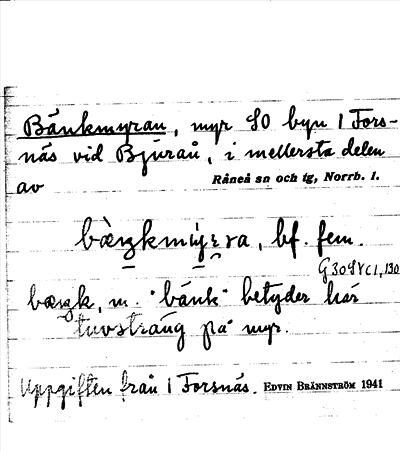 Bänkmyran, myr SO byn 1 Fors-
näs vid Bjurån, i mellersta delen
av
Råneå sn och tg, Norrb. l.
bf. fem.
m. "bänk" betyder här
tuvsträng på myr.
Uppgiften från 1 Forsnäs. EDVIN BRÄNNSTRÖM 1941